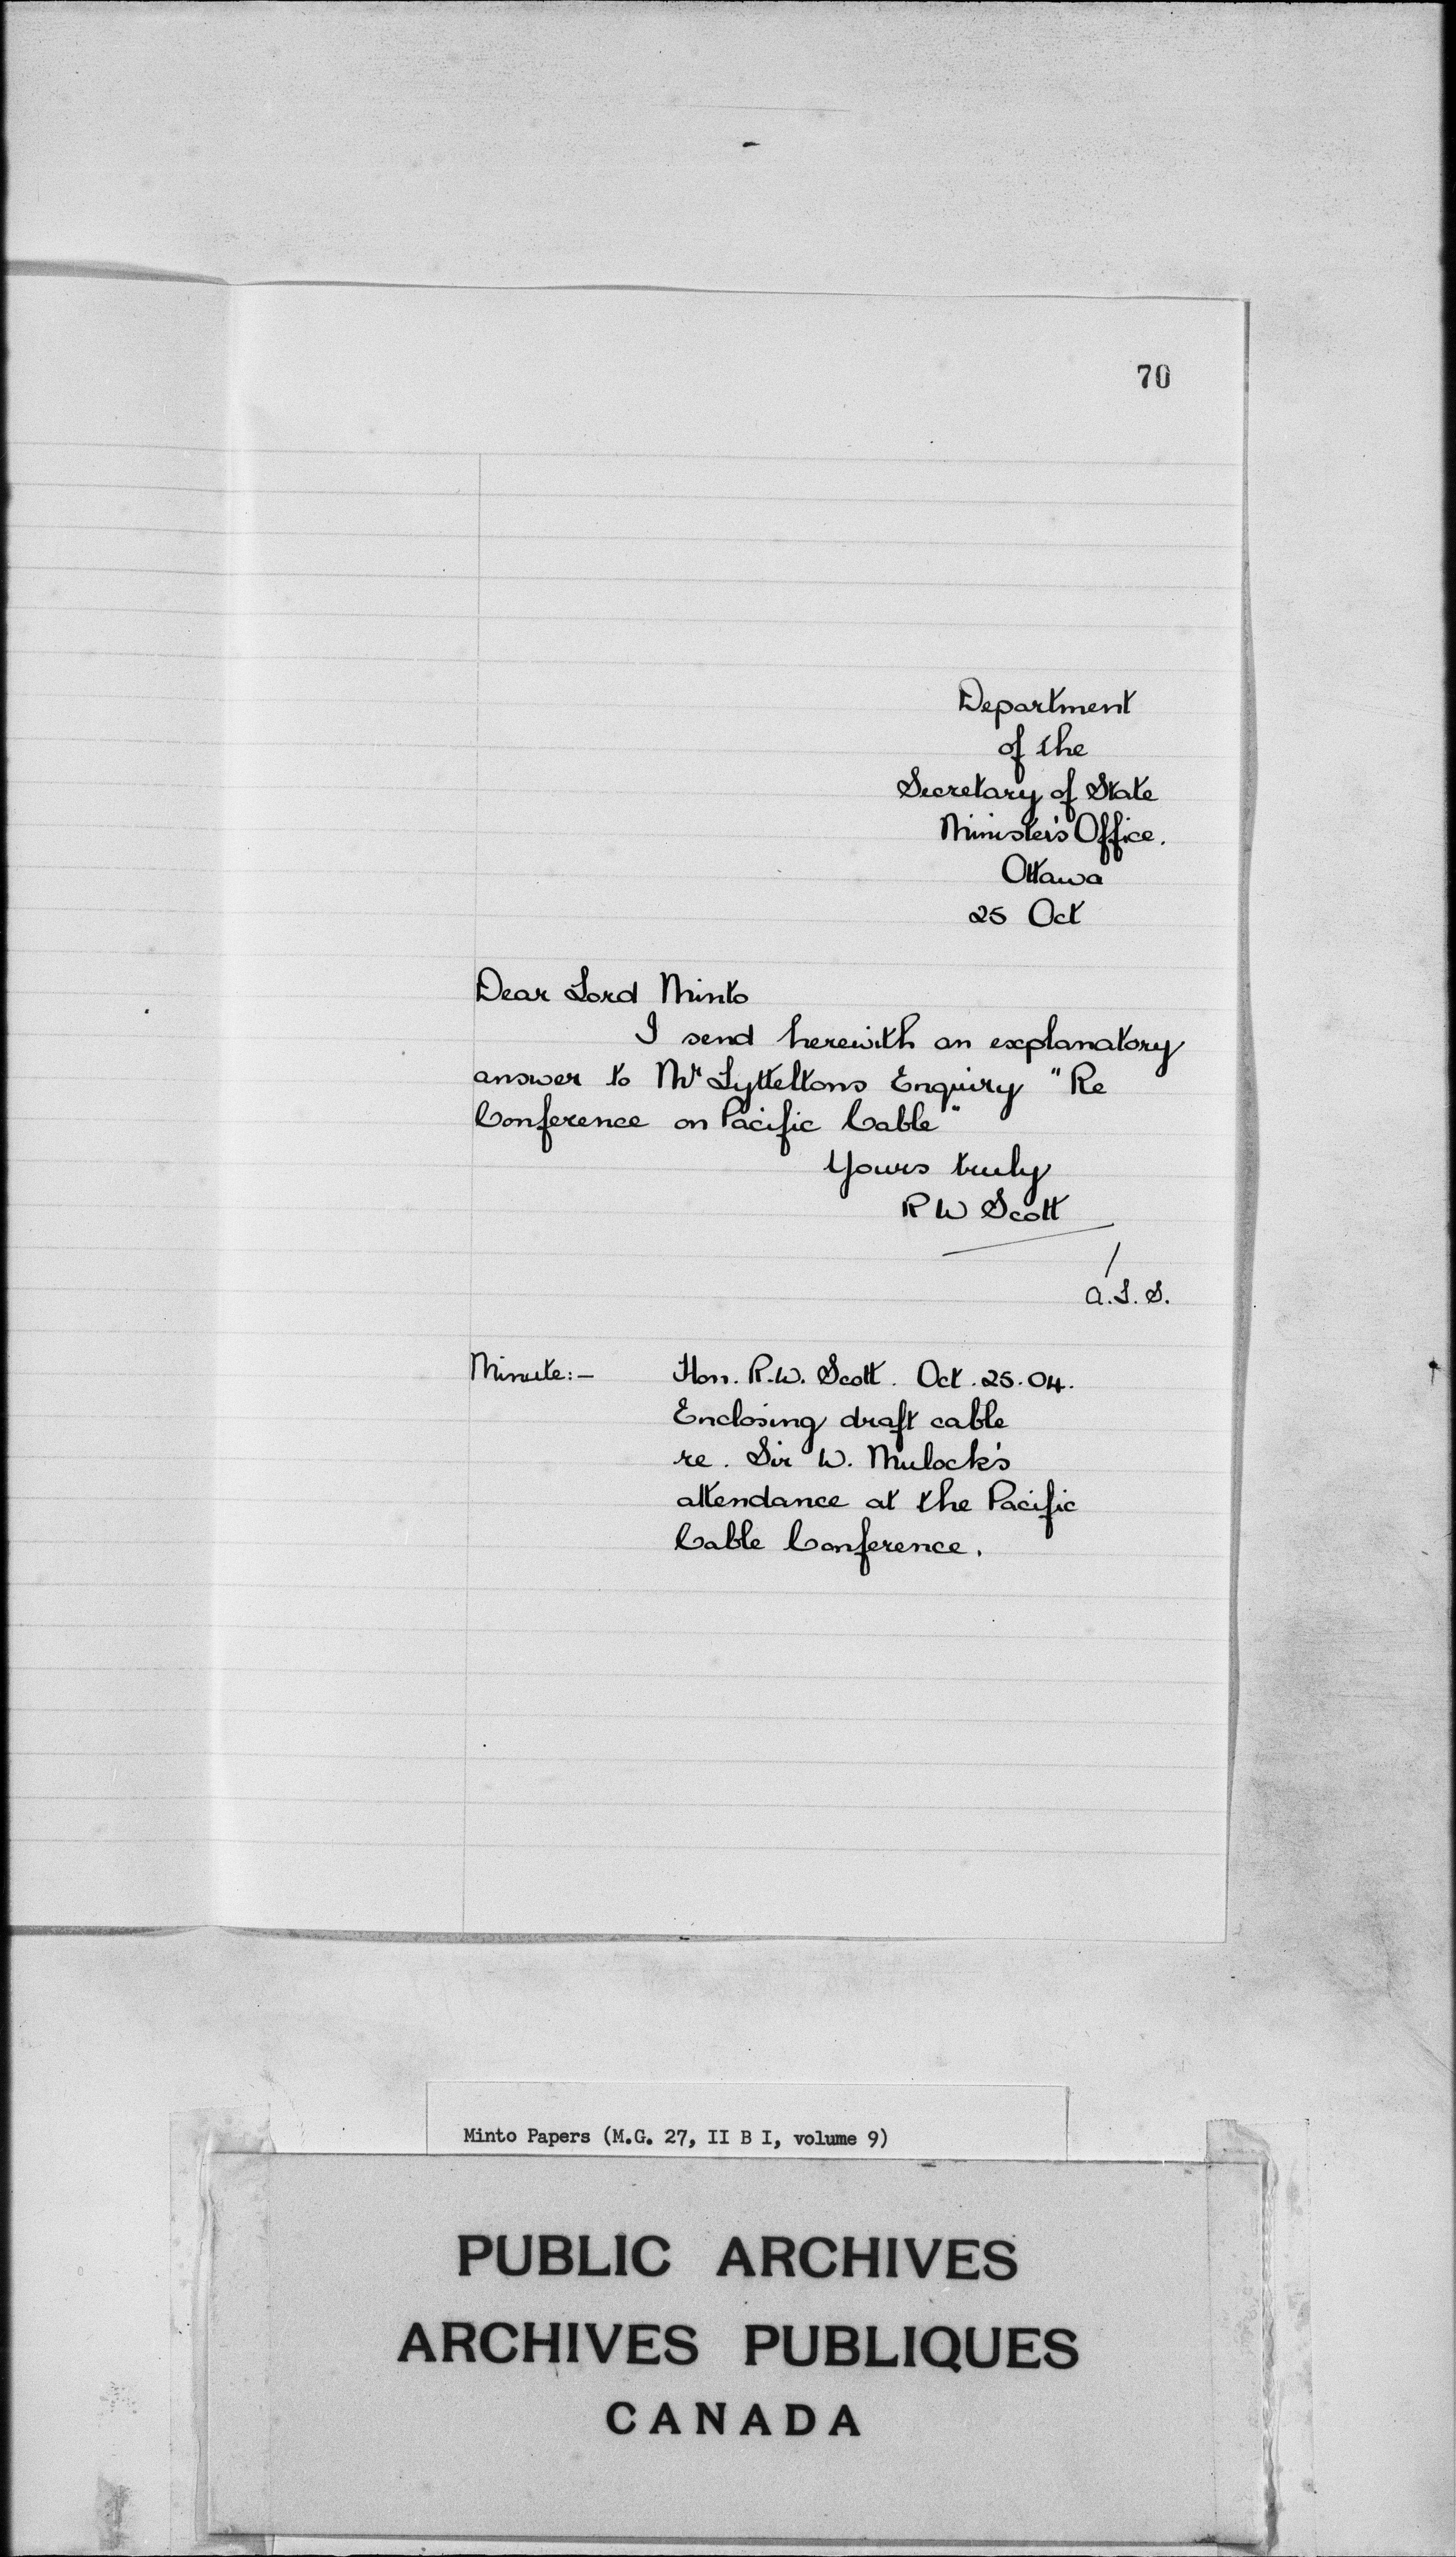 70
Department
of the
Secretary of State
Minister's Office.
Ottawa
25 Oct
Dear Lord Minto
I send herewith an explanatory
answer to Mr Lytteltons Enquiry "Re
Conference on Pacific Cable"
Yours truly
R W Scott
/
A.L.S.
Minute:- Hon. R.W. Scott. Oct. 25. 04.
Enclosing draft cable
re. Sir W. Mulock's
attendance at the Pacific
Cable Conference.
Minto Papers (M.G. 27, II B I, volume 9)
PUBLIC ARCHIVES
ARCHIVES PUBLIQUES
CANADA